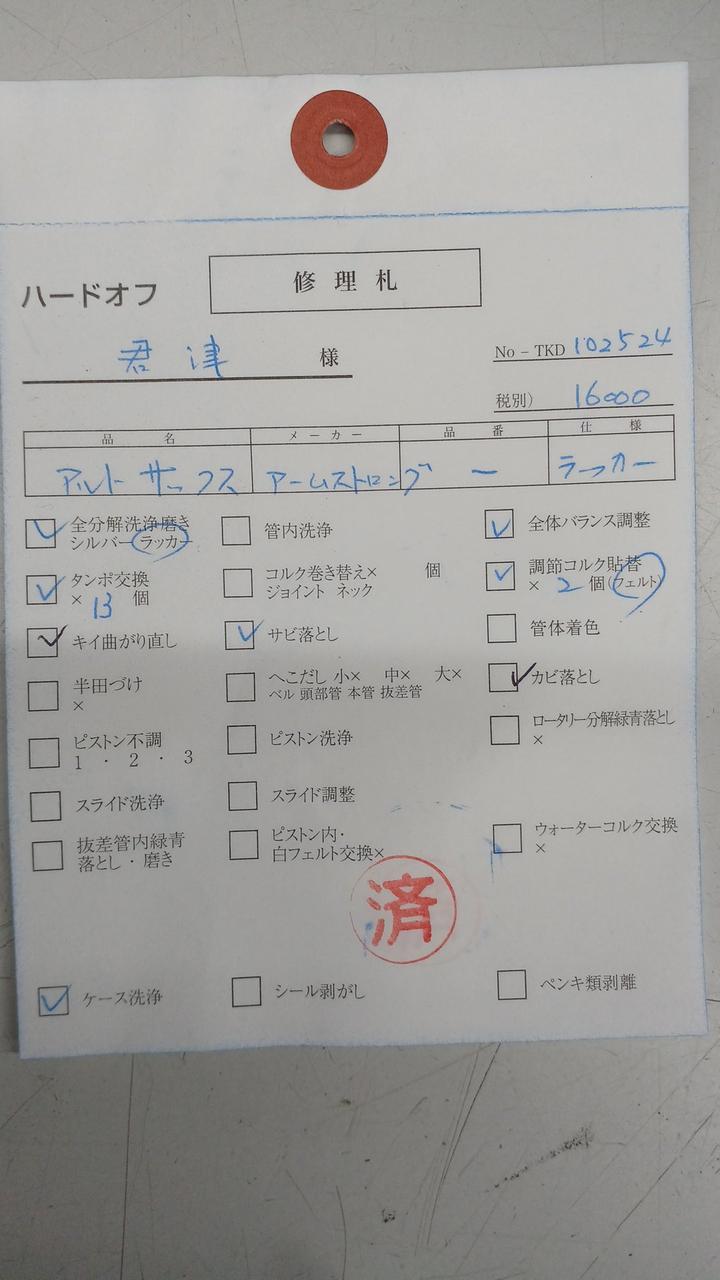 ハードオフ
修理札
君津 様
No－TKD 102524
税別） 16000
品名 メーカー 品番 仕様
アルトサックス アームストロング ー ラッカー
全分解洗浄磨き
シルバー ラッカー
管内洗浄
全体バランス調整
タンポ交換
× 13 個
コルク巻き替え× 個
ジョイント ネック
調節コルク貼替
× 2 個（フェルト）
キイ曲がり直し
サビ落とし
管体着色
半田づけ
×
へこだし 小× 中× 大×
ベル 頭部管 本管 抜差管
カビ落とし
ピストン不調
1・2・3
ピストン洗浄
ロータリー分解緑青落とし
×
スライド洗浄
スライド調整
抜差管内緑青
落とし・磨き
ピストン内・
白フェルト交換×
ウォーターコルク交換
×
済
ケース洗浄
シール剥がし
ペンキ類剥離